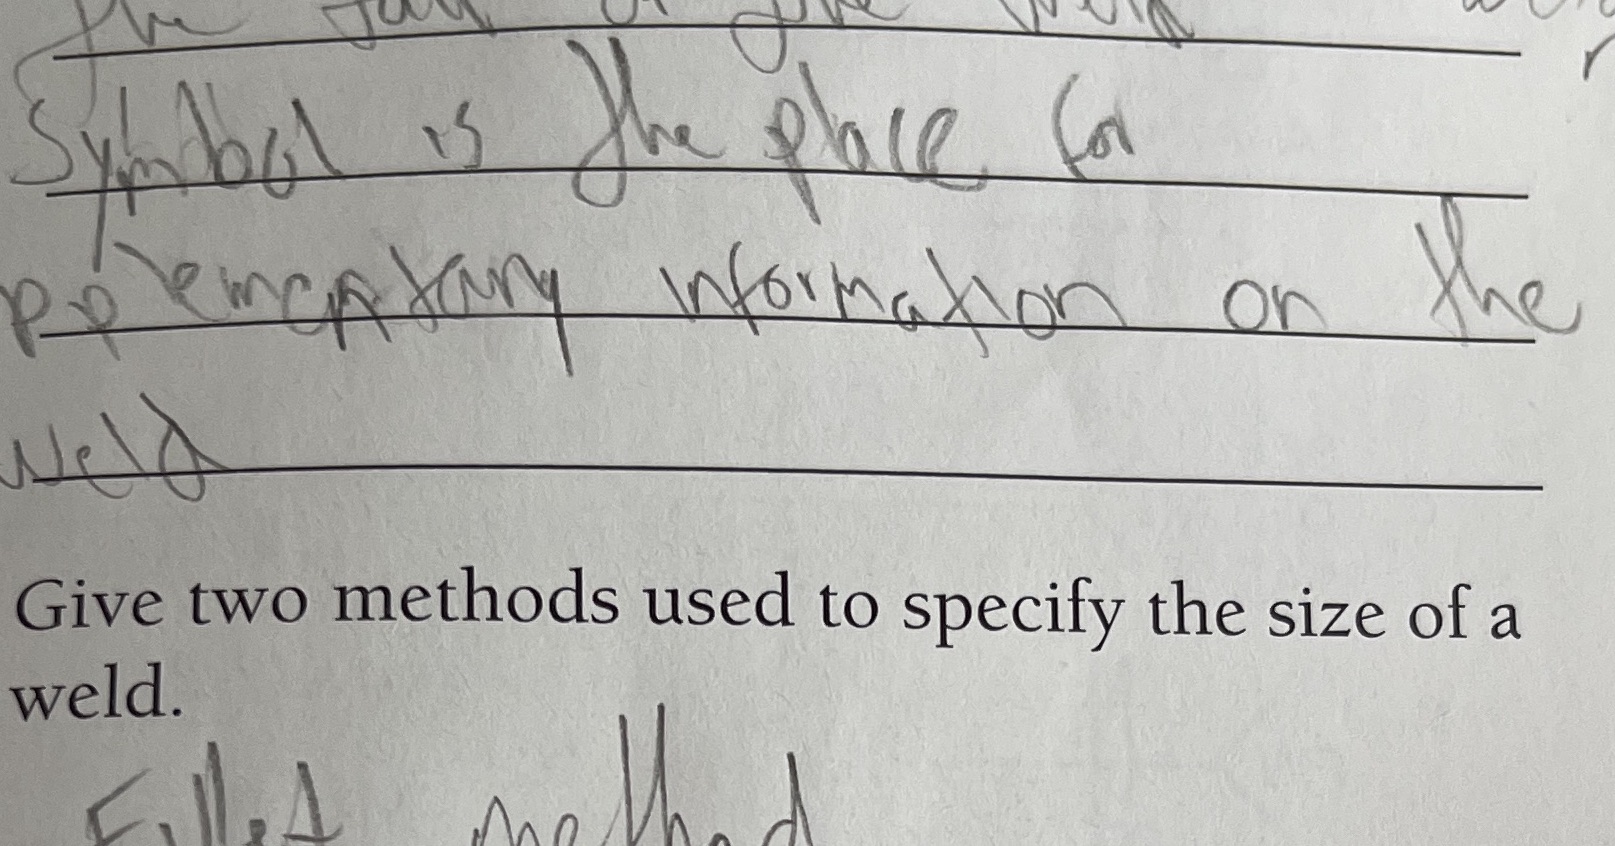 the tail of the weld
Symbol is the place for
pplementary information on the
weld
Give two methods used to specify the size of a
weld.
Fillet method